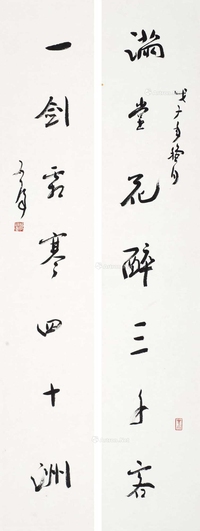 满堂花醉三千客
一剑霜寒四十洲